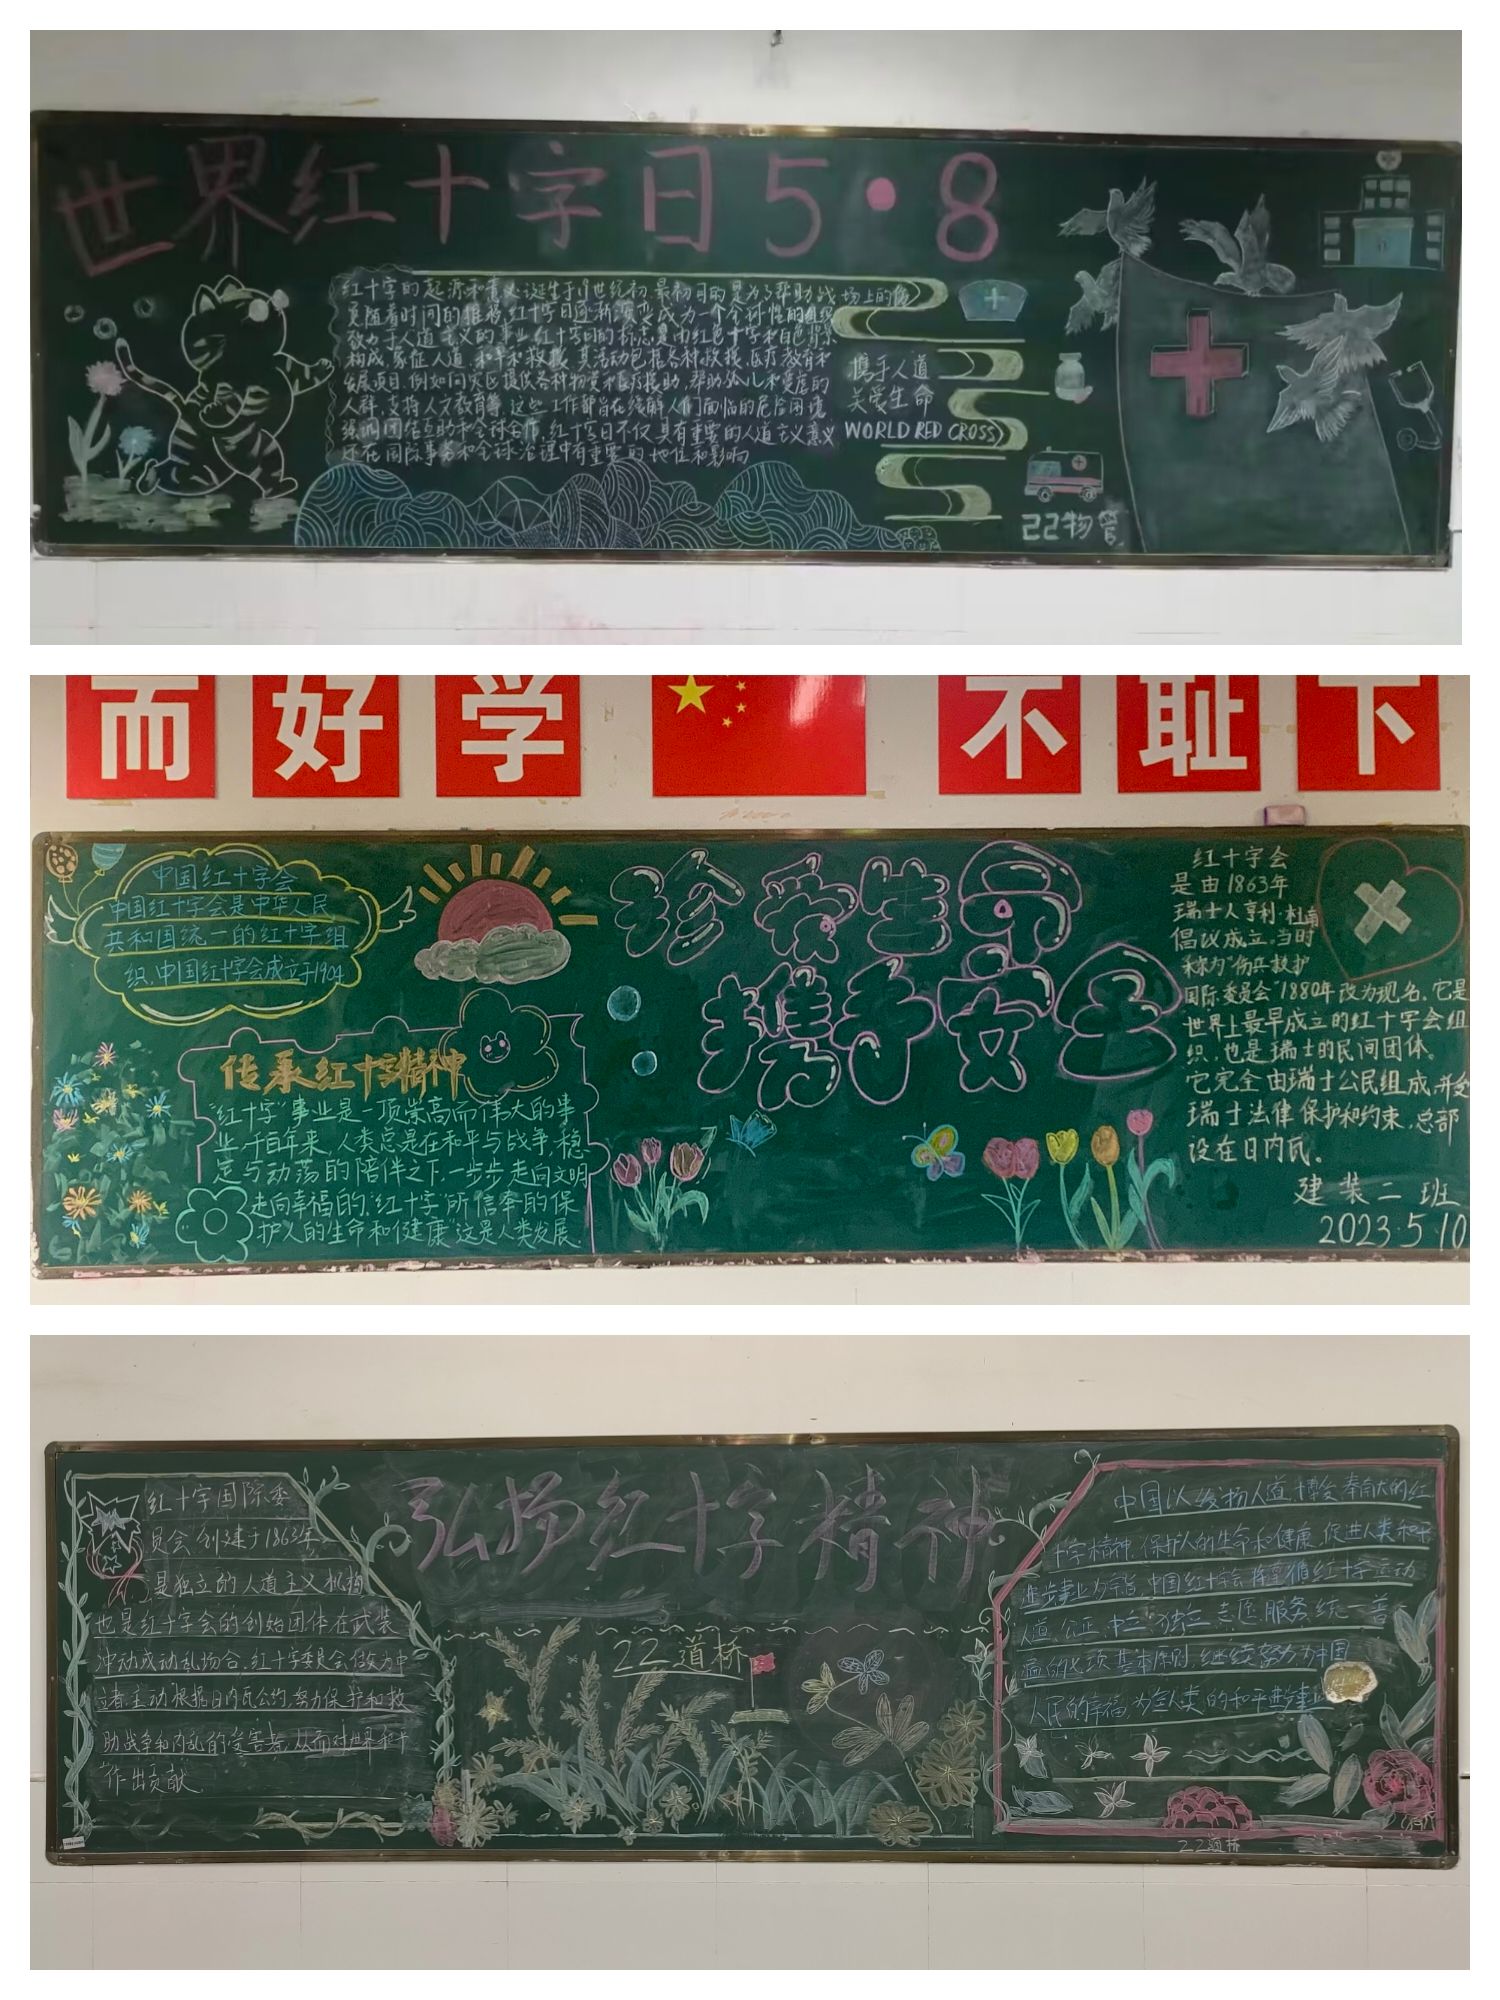 世界红十字日5·8
红十字的起源和意义诞生于19世纪初,最初目的是为了帮助战场上的伤
员随着时间的推移,红十字日逐渐演变成为一个全球性的组织
致力于人道主义的事业,红十字日的标志是由红色十字和白色背景
构成,象征人道、和平和救援,其活动包括各种救援、医疗教育和
发展项目,例如向灾区提供各种物资和医疗援助,帮助孤儿和受虐的
人群,支持人文教育等,这些工作都旨在缓解人们面临的危急困境,
强调团结互助和全球合作,红十字日不仅具有重要的人道主义意义
还在国际事务和全球治理中有重要的地位和影响
携手人道
关爱生命
WORLD RED CROSS
22物管
而好学
不耻下
中国红十字会
中国红十字会是中华人民
共和国统一的红十字组
织,中国红十字会成立于1904
传承红十字精神
“红十字”事业是一项崇高而伟大的事
业,千百年来,人类总是在和平与战争,稳
定与动荡的陪伴之下,一步步走向文明
走向幸福的,“红十字”所信奉的“保
护人的生命和健康”这是人类发展
珍爱生命
携手安全
红十字会
是由1863年
瑞士人亨利·杜南
倡议成立,当时
称为“伤兵救护
国际委员会”1880年改为现名。它是
世界上最早成立的红十字会组
织,也是瑞士的民间团体。
它完全由瑞士公民组成,并受
瑞士法律保护和约束,总部
设在日内瓦。
建装二班
2023.5.10
弘扬红十字精神
22道桥
红十字国际委
员会创建于1863年
是独立的人道主义机构
也是红十字会的创始团体在武装
冲动或动乱场合,红十字委员会做为中
立者主动根据日内瓦公约,努力保护和救
助战争和内乱的受害者,从而对世界和平
作出贡献
中国以发扬人道,博爱,奉献的红
十字精神,保护人的生命和健康,促进人类和平
进步事业为宗旨,中国红十字会将遵循红十字运动
人道,公正,中立,独立,志愿服务,统一,普
遍的七项基本原则,继续努力为中国
人民的幸福,为全人类的和平进步事业
22道桥